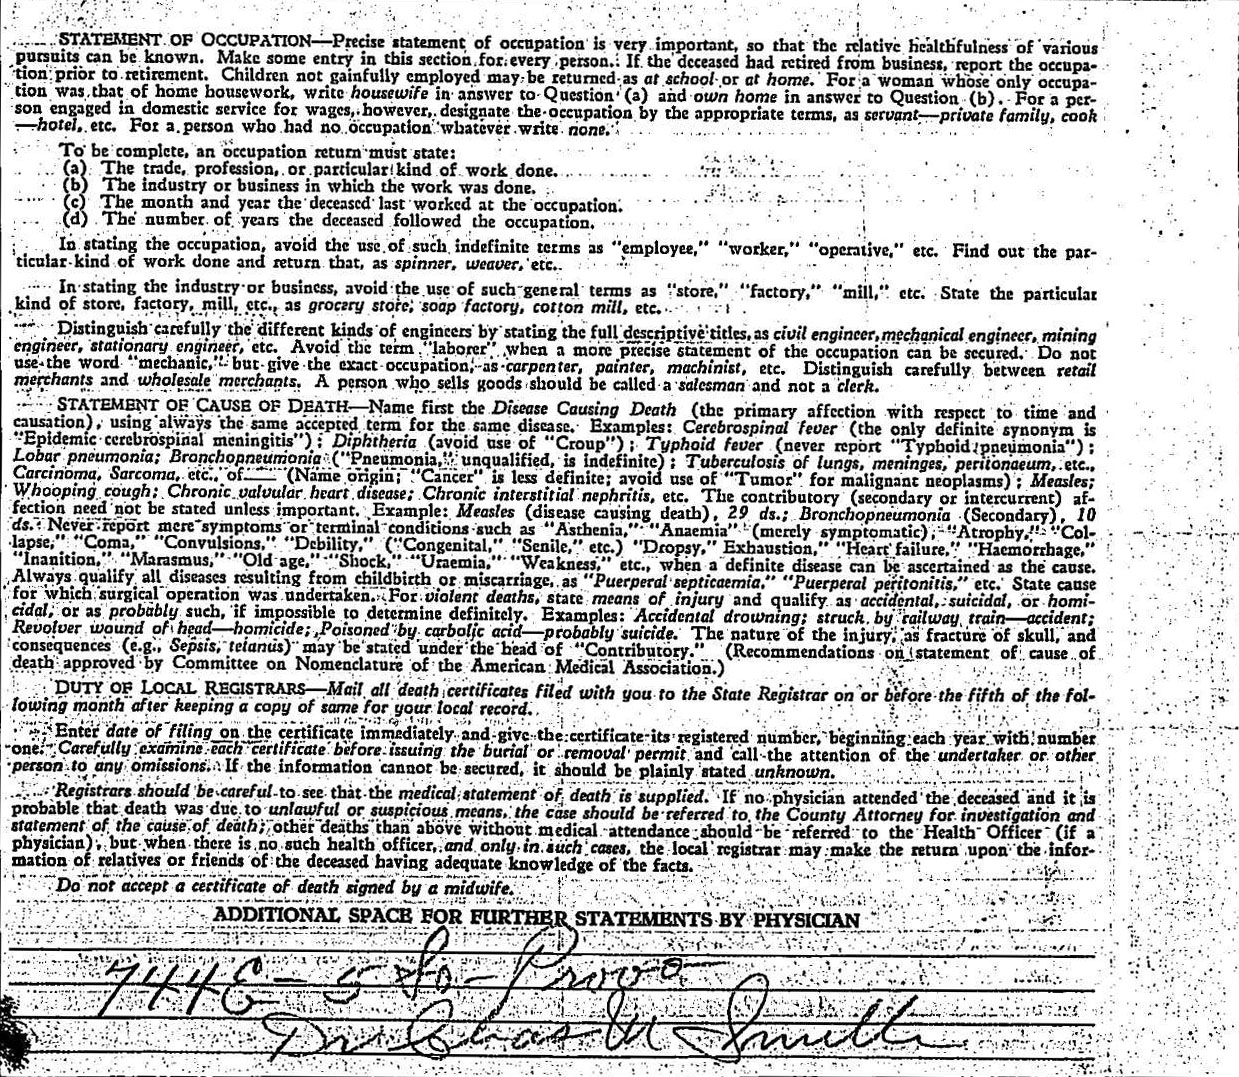 STATEMENT OF OCCUPATION—Precise statement of occupation is very important, so that the relative healthfulness of various
pursuits can be known. Make some entry in this section for every person. If the deceased had retired from business, report the occupa-
tion prior to retirement. Children not gainfully employed may be returned as at school or at home. For a woman whose only occupa-
tion was that of home housework, write housewife in answer to Question (a) and own home in answer to Question (b). For a per-
son engaged in domestic service for wages, however, designate the occupation by the appropriate terms, as servant—private family, cook
—hotel, etc. For a person who had no occupation whatever write none.
To be complete, an occupation return must state:
(a) The trade, profession, or particular kind of work done.
(b) The industry or business in which the work was done.
(c) The month and year the deceased last worked at the occupation.
(d) The number of years the deceased followed the occupation.
In stating the occupation, avoid the use of such indefinite terms as "employee," "worker," "operative," etc. Find out the par-
ticular kind of work done and return that, as spinner, weaver, etc.
In stating the industry or business, avoid the use of such general terms as "store," "factory," "mill," etc. State the particular
kind of store, factory, mill, etc., as grocery store, soap factory, cotton mill, etc.
Distinguish carefully the different kinds of engineers by stating the full descriptive titles, as civil engineer, mechanical engineer, mining
engineer, stationary engineer, etc. Avoid the term "laborer" when a more precise statement of the occupation can be secured. Do not
use the word "mechanic," but give the exact occupation, as carpenter, painter, machinist, etc. Distinguish carefully between retail
merchants and wholesale merchants. A person who sells goods should be called a salesman and not a clerk.
STATEMENT OF CAUSE OF DEATH—Name first the Disease Causing Death (the primary affection with respect to time and
causation), using always the same accepted term for the same disease. Examples: Cerebrospinal fever (the only definite synonym is
"Epidemic cerebrospinal meningitis"); Diphtheria (avoid use of "Croup"); Typhoid fever (never report "Typhoid pneumonia");
Lobar pneumonia; Bronchopneumonia ("Pneumonia," unqualified, is indefinite); Tuberculosis of lungs, meninges, peritonaeum, etc.,
Carcinoma, Sarcoma, etc., of____ (Name origin; "Cancer" is less definite; avoid use of "Tumor" for malignant neoplasms); Measles;
Whooping cough; Chronic valvular heart disease; Chronic interstitial nephritis, etc. The contributory (secondary or intercurrent) af-
fection need not be stated unless important. Example: Measles (disease causing death), 29 ds.; Bronchopneumonia (Secondary), 10
ds. Never report mere symptoms or terminal conditions such as "Asthenia," "Anaemia" (merely symptomatic), "Atrophy," "Col-
lapse," "Coma," "Convulsions," "Debility," ("Congenital," "Senile," etc.) "Dropsy," Exhaustion," "Heart failure," "Haemorrhage,"
"Inanition," "Marasmus," "Old age," "Shock," "Uraemia," "Weakness," etc., when a definite disease can be ascertained as the cause.
Always qualify all diseases resulting from childbirth or miscarriage, as "Puerperal septicaemia," "Puerperal peritonitis," etc. State cause
for which surgical operation was undertaken. For violent deaths, state means of injury and qualify as accidental, suicidal, or homi-
cidal, or as probably such, if impossible to determine definitely. Examples: Accidental drowning; struck by railway train—accident;
Revolver wound of head—homicide; Poisoned by carbolic acid—probably suicide. The nature of the injury, as fracture of skull, and
consequences (e.g., Sepsis, tetanus) may be stated under the head of "Contributory." (Recommendations on statement of cause of
death approved by Committee on Nomenclature of the American Medical Association.)
DUTY OF LOCAL REGISTRARS—Mail all death certificates filed with you to the State Registrar on or before the fifth of the fol-
lowing month after keeping a copy of same for your local record.
Enter date of filing on the certificate immediately and give the certificate its registered number, beginning each year with number
one. Carefully examine each certificate before issuing the burial or removal permit and call the attention of the undertaker or other
person to any omissions. If the information cannot be secured, it should be plainly stated unknown.
Registrars should be careful to see that the medical statement of death is supplied. If no physician attended the deceased and it is
probable that death was due to unlawful or suspicious means, the case should be referred to the County Attorney for investigation and
statement of the cause of death; other deaths than above without medical attendance should be referred to the Health Officer (if a
physician), but when there is no such health officer, and only in such cases, the local registrar may make the return upon the infor-
mation of relatives or friends of the deceased having adequate knowledge of the facts.
Do not accept a certificate of death signed by a midwife.
ADDITIONAL SPACE FOR FURTHER STATEMENTS BY PHYSICIAN
744 E - 5 So - Provo
Dr Chas M Smith